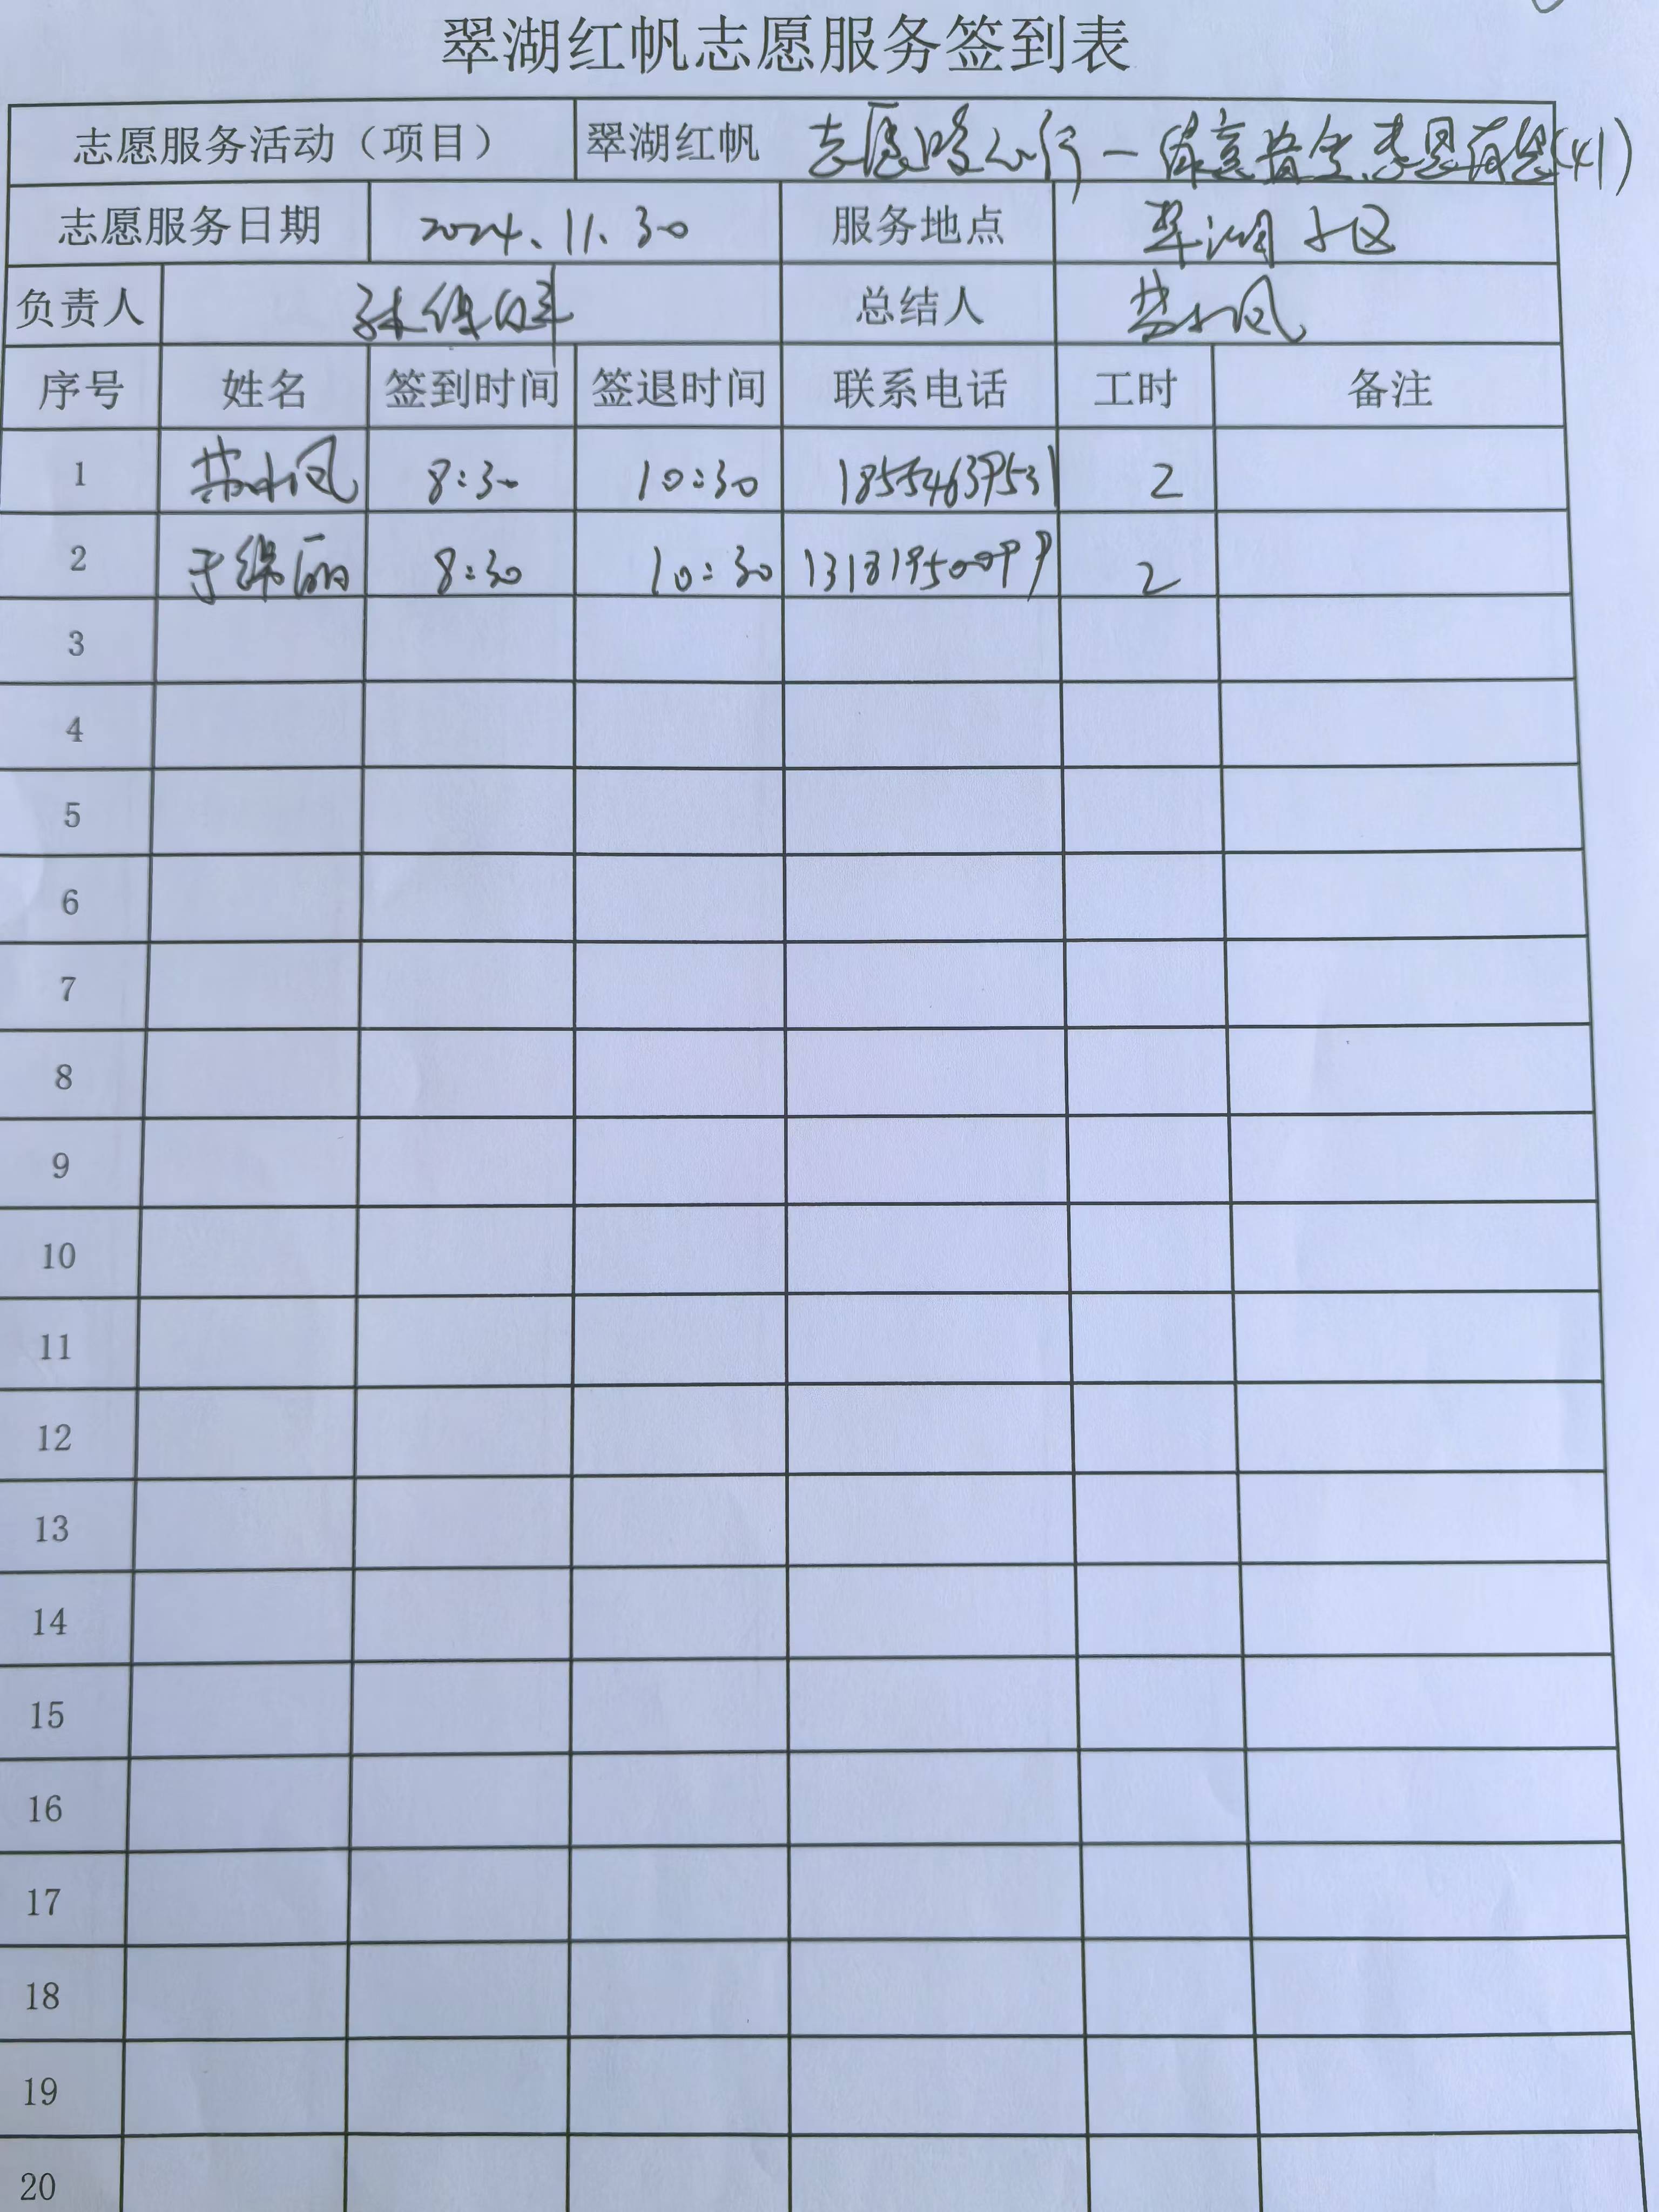 翠湖红帆志愿服务签到表
志愿服务活动（项目） 翠湖红帆 志愿暖心行一
志愿服务日期 2024.11.30 服务地点 翠湖小区
负责人 总结人 苏小凤
序号 姓名 签到时间 签退时间 联系电话 工时 备注
1 苏小凤 8:30 10:30 18554639531 2
2 于绵丽 8:30 10:30 13181950099 2
3
4
5
6
7
8
9
10
11
12
13
14
15
16
17
18
19
20